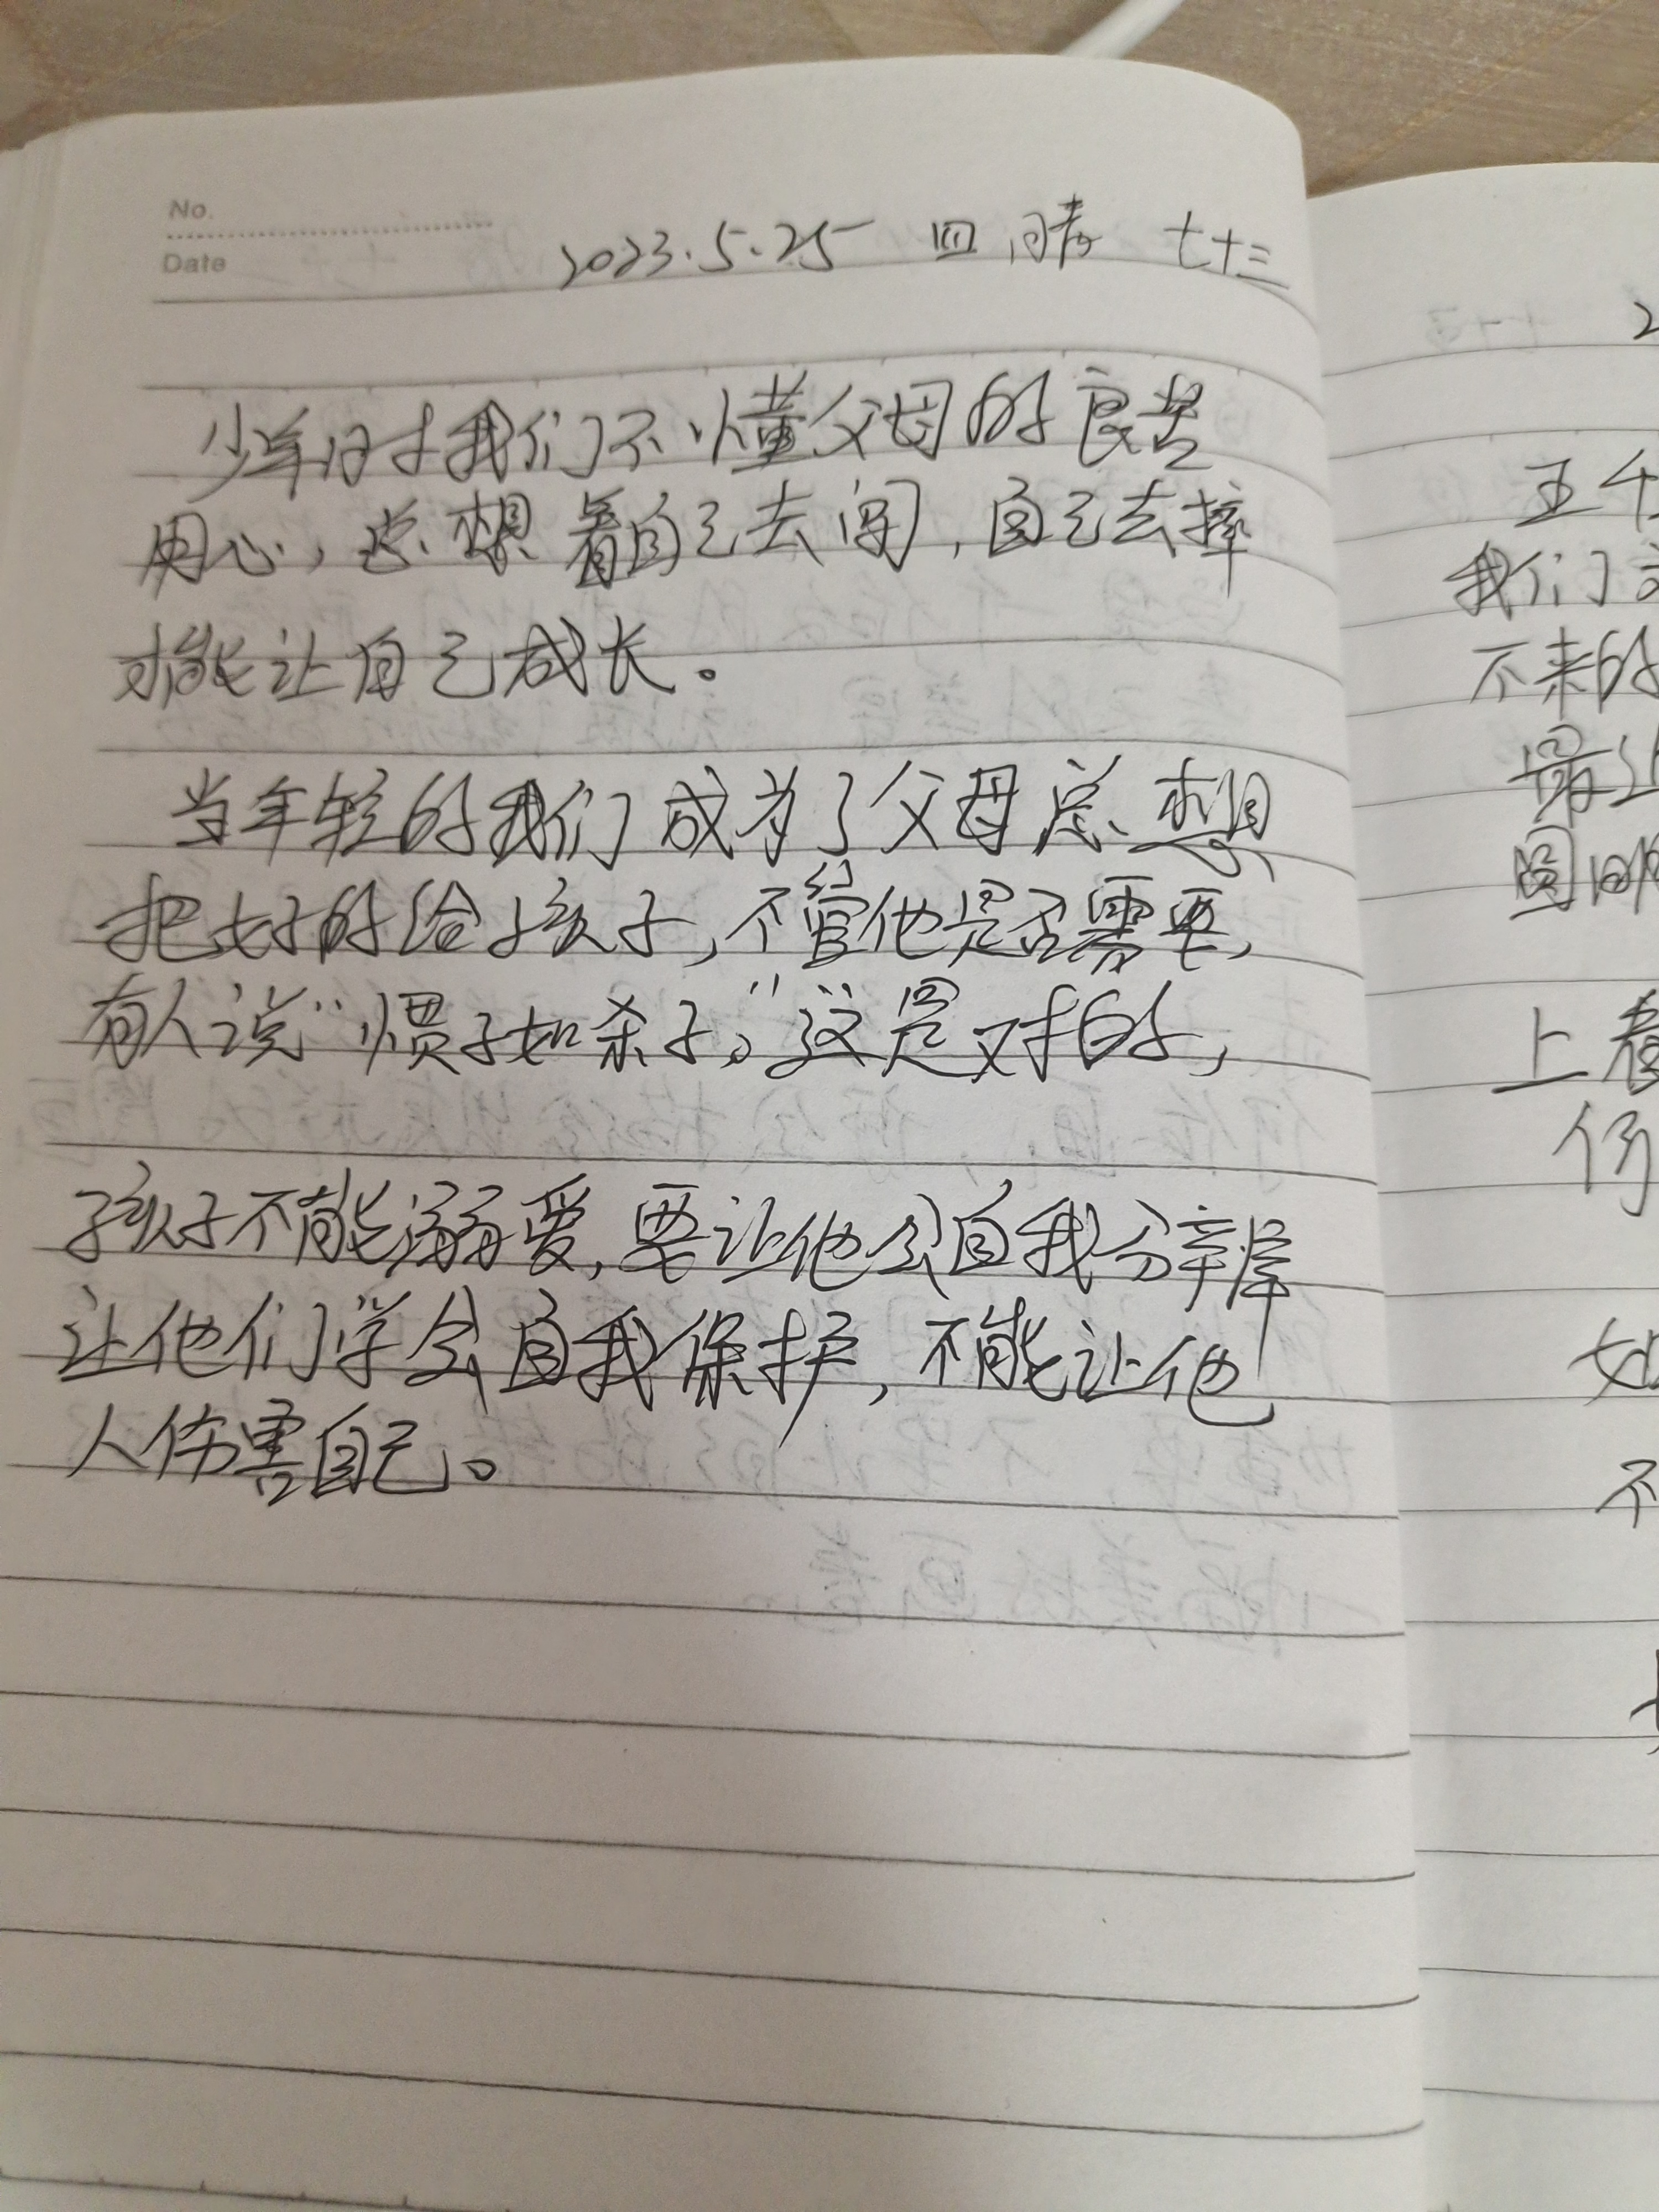 No.
Date
2023.5.25 四 晴 七十三
少年时我们不懂父母的良苦
用心，总想着自己去闯，自己去摔
才能让自己成长。
当年轻的我们成为了父母总想
把好的给孩子，不管他是否需要，
有人说“惯子如杀子。”这是对的，
孩子不能溺爱，要让他会自我分辨
让他们学会自我保护，不能让他
人伤害自己。
我们
不来的
最近
圆明
上卷
不